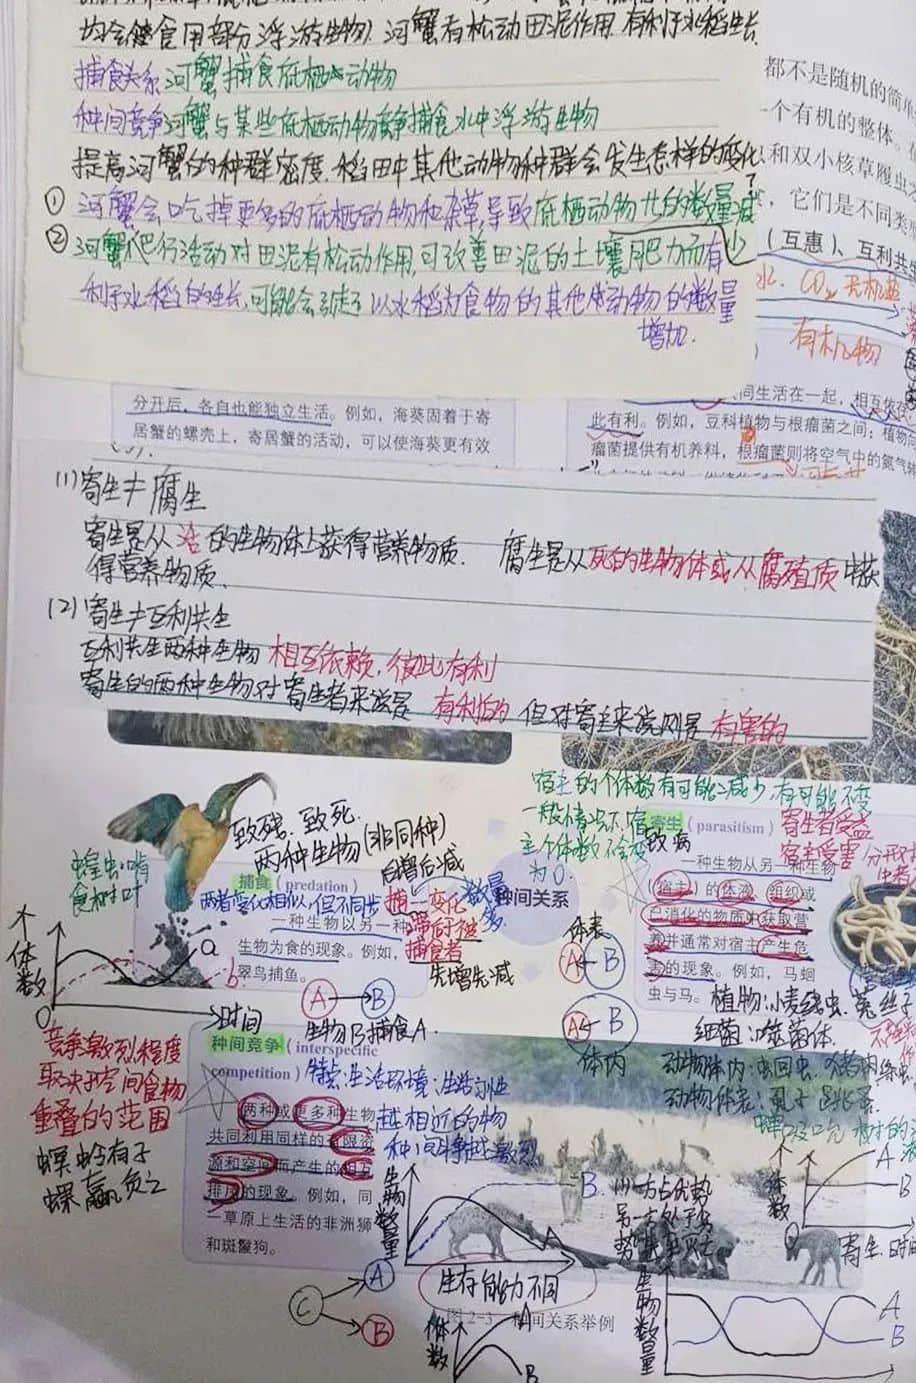 均会捕食部分浮游生物) 河蟹有松动田泥作用,有利于水稻生长.
捕食关系 河蟹捕食底栖动物
种间竞争 河蟹与某些底栖动物竞争捕食水中浮游生物
提高河蟹的种群密度,稻田中其他动物种群会发生怎样的变化?
① 河蟹会吃掉更多的底栖动物和杂草,导致底栖动物的数量减少
② 河蟹爬行活动对田泥有松动作用,可改善田泥的土壤肥力而有
利于水稻的生长,可能会引起以水稻为食物的其他动物的数量
增加.
都不是随机的简单
一个有机的整体。
和双小核草履虫
,它们是不同类
(互惠)、互利共生
水、CO₂ 无机盐
有机物
分开后,各自也能独立生活。例如,海葵固着于寄
居蟹的螺壳上,寄居蟹的活动,可以使海葵更有效
同生活在一起,相互依存
此有利。例如,豆科植物与根瘤菌之间:植物
瘤菌提供有机养料,根瘤菌则将空气中的氮气
(1) 寄生≠腐生
寄生是从活的生物体上获得营养物质. 腐生是从死的生物体或从腐殖质中获
得营养物质.
(2) 寄生≠互利共生
互利共生两种生物 相互依赖,彼此有利
寄生的两种生物对寄生者来说是 有利的 但对寄主来说则是 有害的
宿主的个体数有可能减少,有可能不变
一般情况下,宿
主个体数不会变
为0.
致残、致死.
两种生物(非同种)
蝗虫啃
食树叶
捕食 (predation)
两者变化相似,但不同步
一种生物以另一种
生物为食的现象。例如,
翠鸟捕鱼。
先增先减
捕食者
滞后性
数量
多.
种间关系
A→B
生物B捕食A.
个体数
a
b
O
时间
寄生 (parasitism)
致病
寄生者受益
宿主受害
一种生物从另一种生物
(宿主)的体液、组织或
已消化的物质中获取营
养并通常对宿主产生危
害的现象。例如,马蛔
虫与马。
体表
A←B
A←B
体内
植物:小麦线虫、菟丝子
细菌:噬菌体.
动物体内:蛔虫、猪肉绦虫
动物体表:虱子 跳蚤
竞争激烈程度
取决于空间食物
重叠的范围
螟蛉有子
蜾蠃负之
种间竞争 (interspecific
competition) 特点:生活环境:生活习性
越相近的物
种间斗争越激烈
两种或更多种生物
共同利用同样的有限资
源和空间而产生的相互
排斥的现象。例如,同
一草原上生活的非洲狮
和斑鬣狗。
C A B
生物数量
B
A
生存能力不同
一方占优势
另一方处于劣
势甚至灭亡
个体数
A
B
寄生 时间
图 2-3 种间关系举例
个体数
A
B
生物数量
A
B